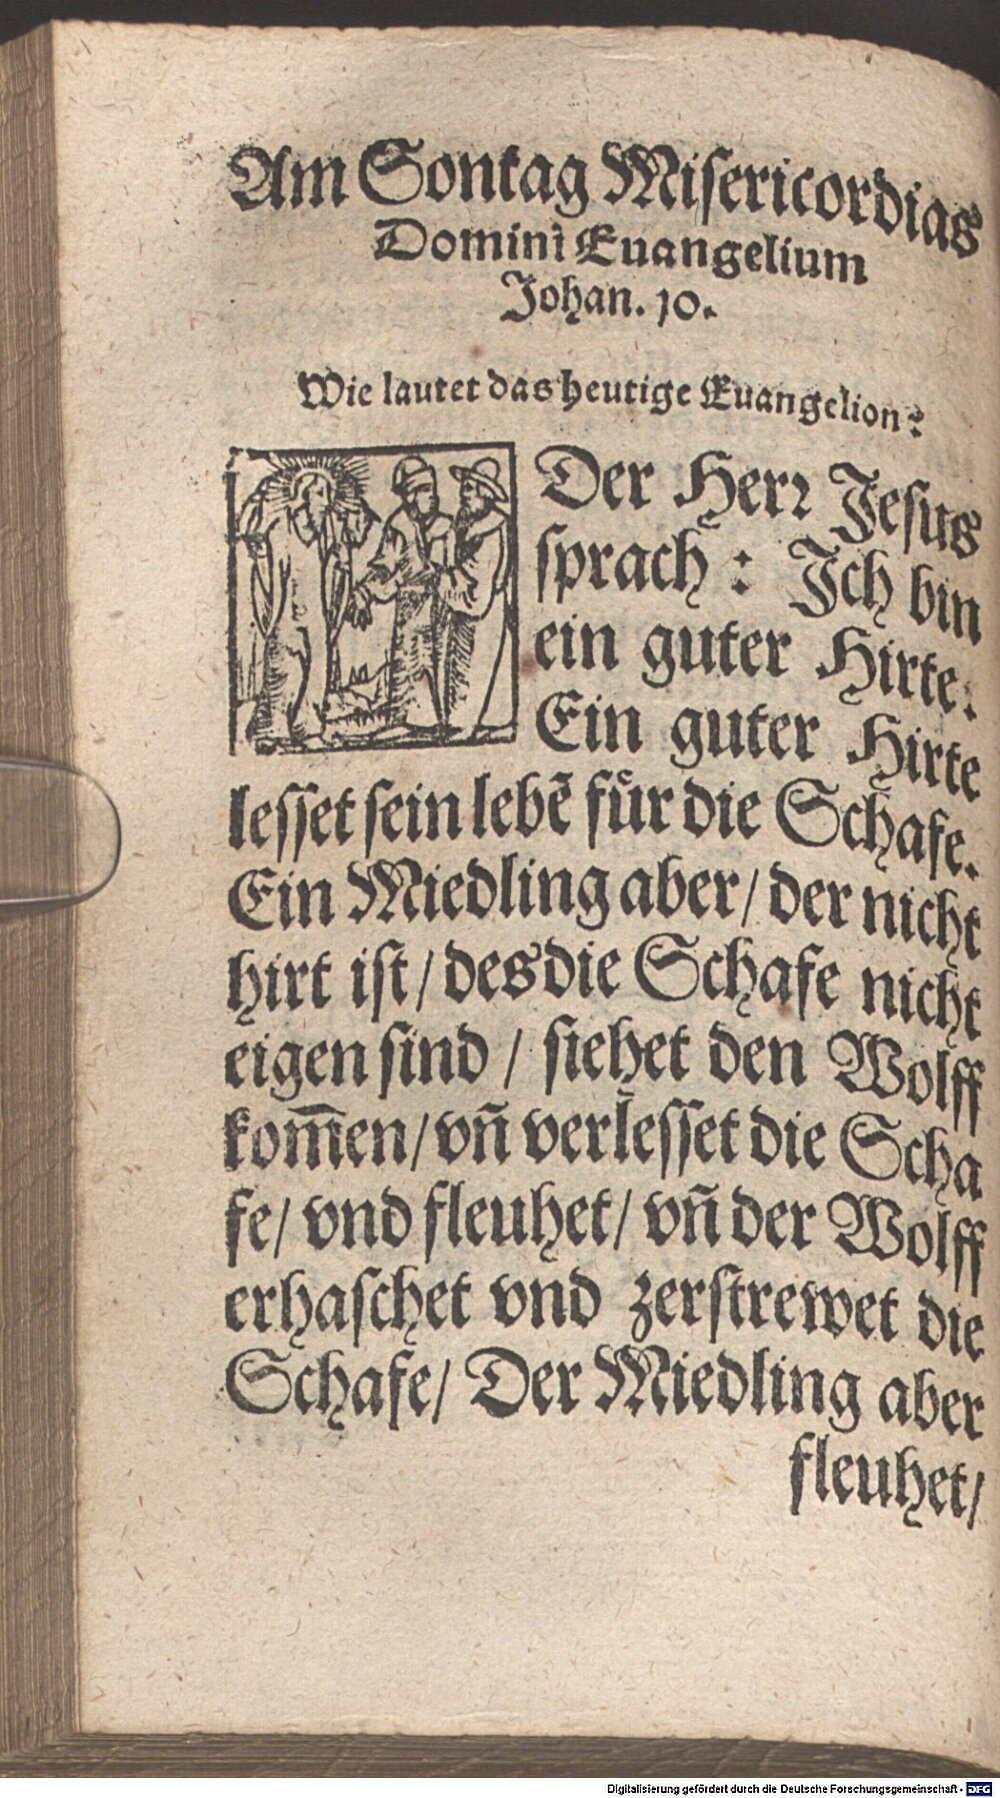 Am Sontag Misericordias
Domini Euangelium
Johan. 10.
Wie lautet das heutige Euangelion?
Der Herr Jesus
sprach : Ich bin
ein guter Hirte.
Ein guter Hirte
lesset sein lebẽ fuͤr die Schafe.
Ein Miedling aber/ der nicht
hirt ist/ des die Schafe nicht
eigen sind / siehet den Wolff
kom̃en/ vñ verlesset die Scha
fe/ vnd fleuhet/ vñ der Wolff
erhaschet vnd zerstrewet die
Schafe/ Der Miedling aber
fleuhet/
Digitalisierung gefördert durch die Deutsche Forschungsgemeinschaft - DFG